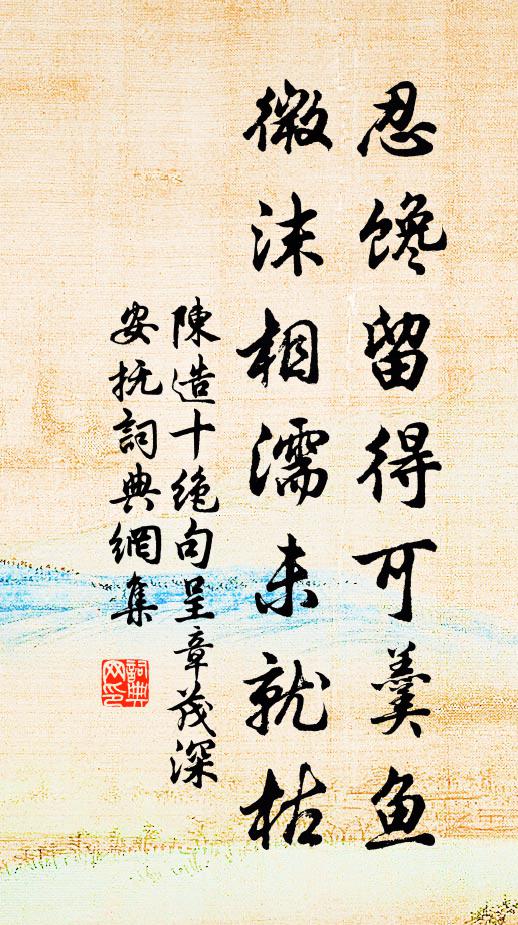 忍馋留得可羹鱼
微沫相濡未就枯
陳造十绝句呈章茂深
安抚詞典網集
詞典
网印